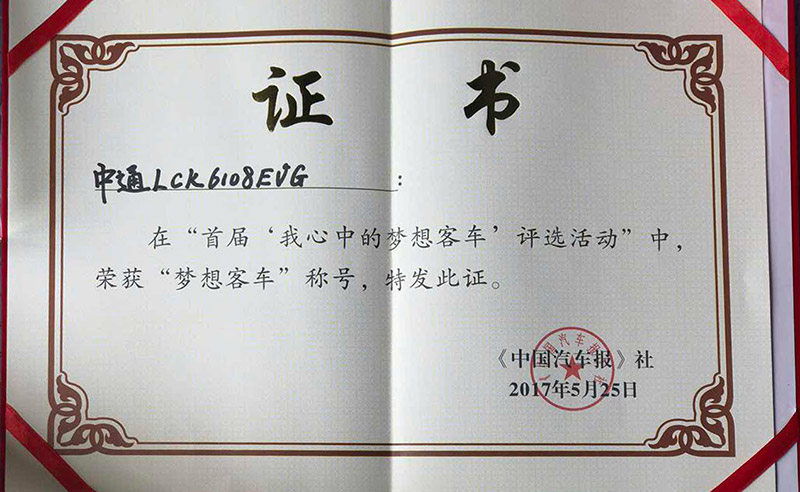 证书
中通LCK6108EVG:
在“首届‘我心中的梦想客车’评选活动”中,
荣获“梦想客车”称号，特发此证。
《中国汽车报》社
2017年5月25日